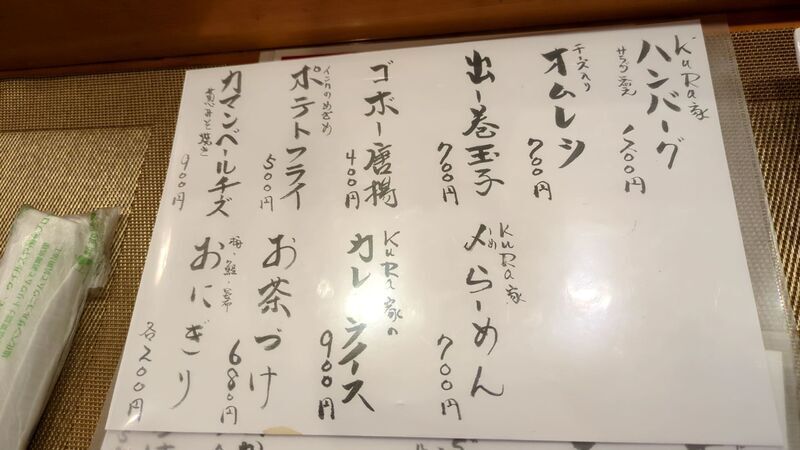 KuRa家
ハンバーグ
サラダ添え
1,200円
チーズ入り
オムレツ
700円
出し巻玉子
700円
ゴボー唐揚
400円
インカのめざめ
ポテトフライ
500円
カマンベールチーズ
900円
KuRa家
〆らーめん
700円
KuRa家の
カレーライス
900円
お茶づけ
680円
おにぎり
各200円